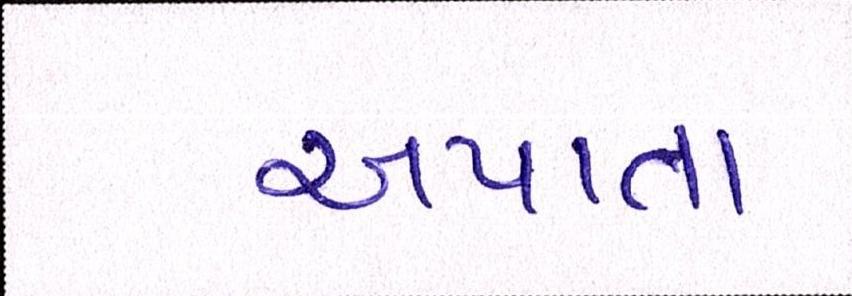 અપાતા